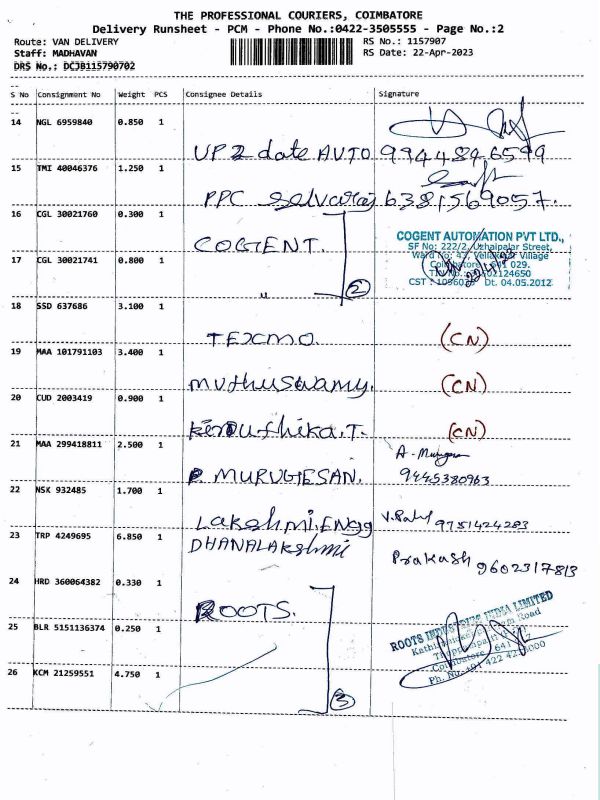 THE PROFESSIONAL COURIERS, COIMBATORE
Delivery Runsheet - PCM - Phone No.:0422-3505555 - Page No.:2
Route: VAN DELIVERY RS No.: 1157907
Staff: MADHAVAN RS Date: 22-Apr-2023
DRS No.: DCJB115790702
S No Consignment No Weight PCS Consignee Details Signature
14 NGL 6959840 0.850 1
UP 2 date AUTO 9944846599
15 TMI 40046376 1.250 1
PPC Selvaraj 6381569057.
16 CGL 30021760 0.300 1
COGENT.
COGENT AUTOMATION PVT LTD.,
SF No: 222/2, Uthaipalar Street,
Ward No: 43, Vellakinar Village
Coimbatore 641 029.
17 CGL 30021741 0.800 1
" 2
CST : Dt. 04.05.2012
18 SSD 637686 3.100 1
TEXMO. (CN)
19 MAA 101791103 3.400 1
muthuswamy. (CN)
20 CUD 2003419 0.900 1
(CN)
21 MAA 299418811 2.500 1
P. MURUGESAN. A. Murugan
9445380963
22 NSK 932485 1.700 1
Lakshmi.ENGG 9751424283
23 TRP 4249695 6.850 1
DHANALAkshmi
Prakash 9602317813
24 HRD 360064382 0.330 1
ROOTS.
ROOTS INDUSTRIES INDIA LIMITED
25 BLR 5151136374 0.250 1
Coimbatore
26 KCM 21259551 4.750 1
3